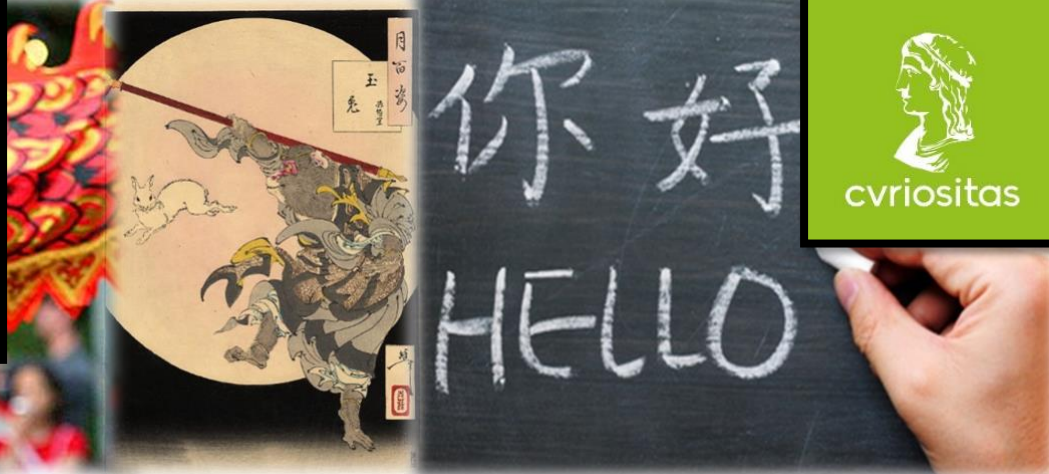 月百姿
玉
兎
你好
HELLO
cvriositas